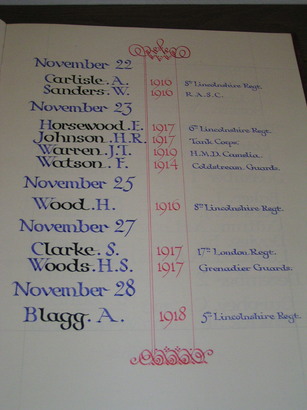 November 22
Carlisle. A. 1916 8th Lincolnshire Regt.
Sanders. W. 1916 R.A.S.C.
November 23
Horsewood. E. 1917 6th Lincolnshire Regt.
Johnson. H.R. 1917 Tank Corps
Warren. J.T. 1919 H.M.D.
Watson. F. 1914 Coldstream Guards.
November 25
Wood. H. 1916 8th Lincolnshire Regt.
November 27
Clarke. S. 1917 17th London Regt.
Woods. H.S. 1917 Grenadier Guards.
November 28
Blagg. A. 1918 5th Lincolnshire Regt.